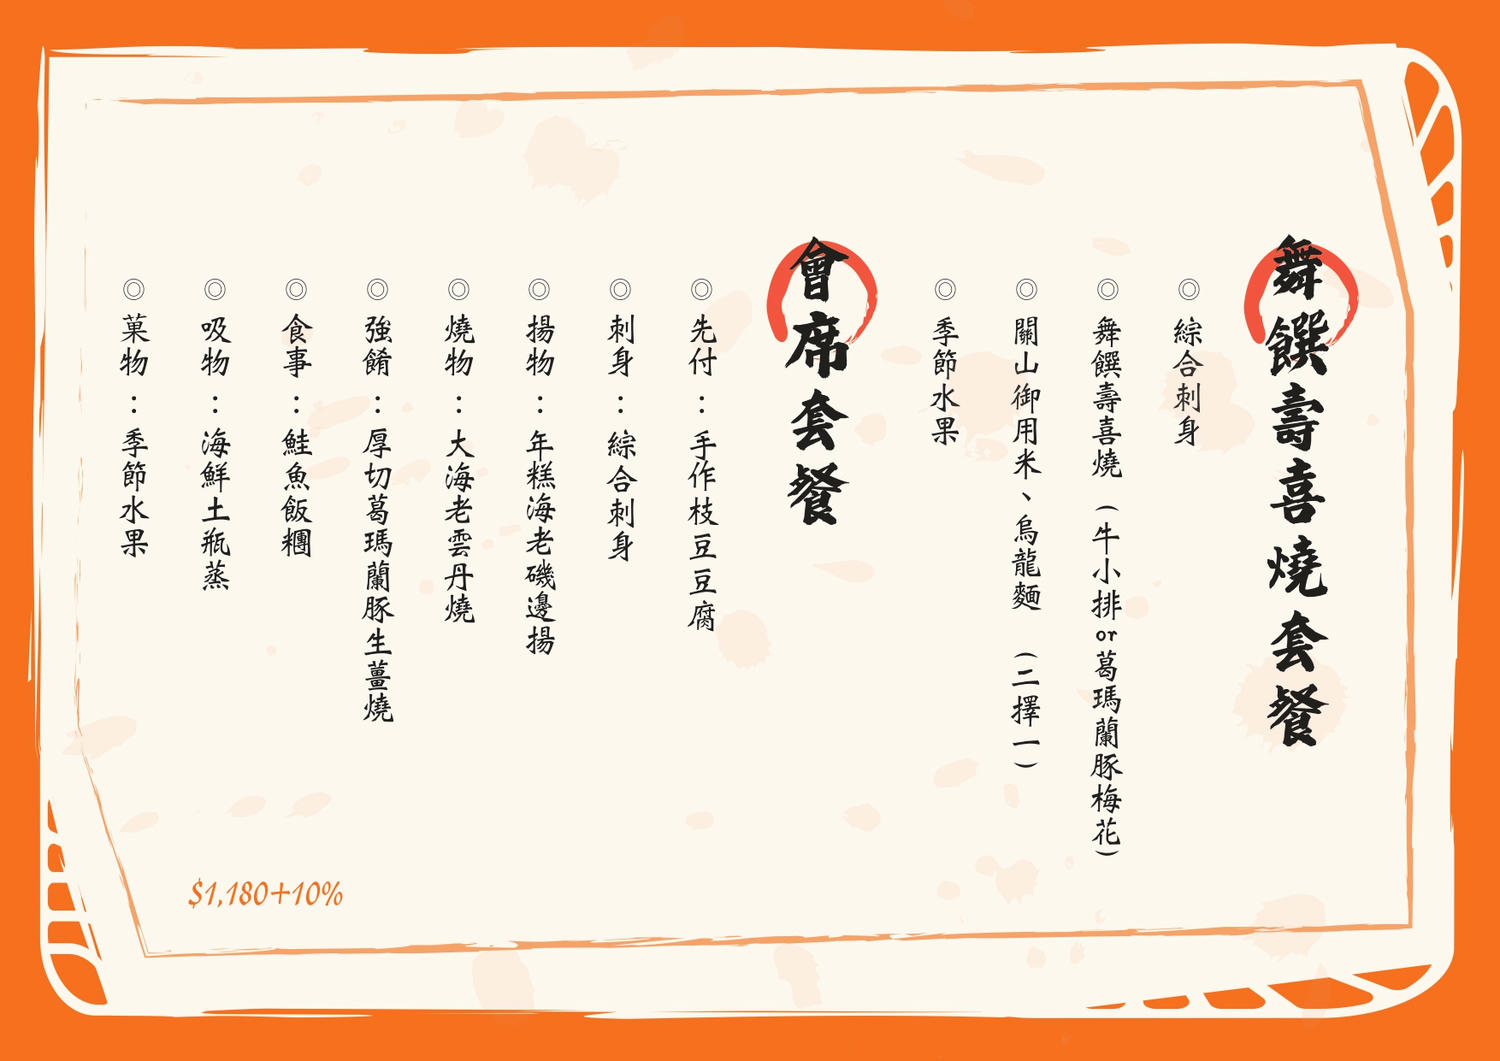 舞饌壽喜燒套餐
◎綜合刺身
◎舞饌壽喜燒(牛小排or葛瑪蘭豚梅花)
◎關山御用米、烏龍麵(二擇一)
◎季節水果
會席套餐
◎先付：手作枝豆豆腐
◎刺身：綜合刺身
◎揚物：年糕海老磯邊揚
◎燒物：大海老雲丹燒
◎強餚：厚切葛瑪蘭豚生薑燒
◎食事：鮭魚飯糰
◎吸物：海鮮土瓶蒸
◎菓物：季節水果
$1,180+10%